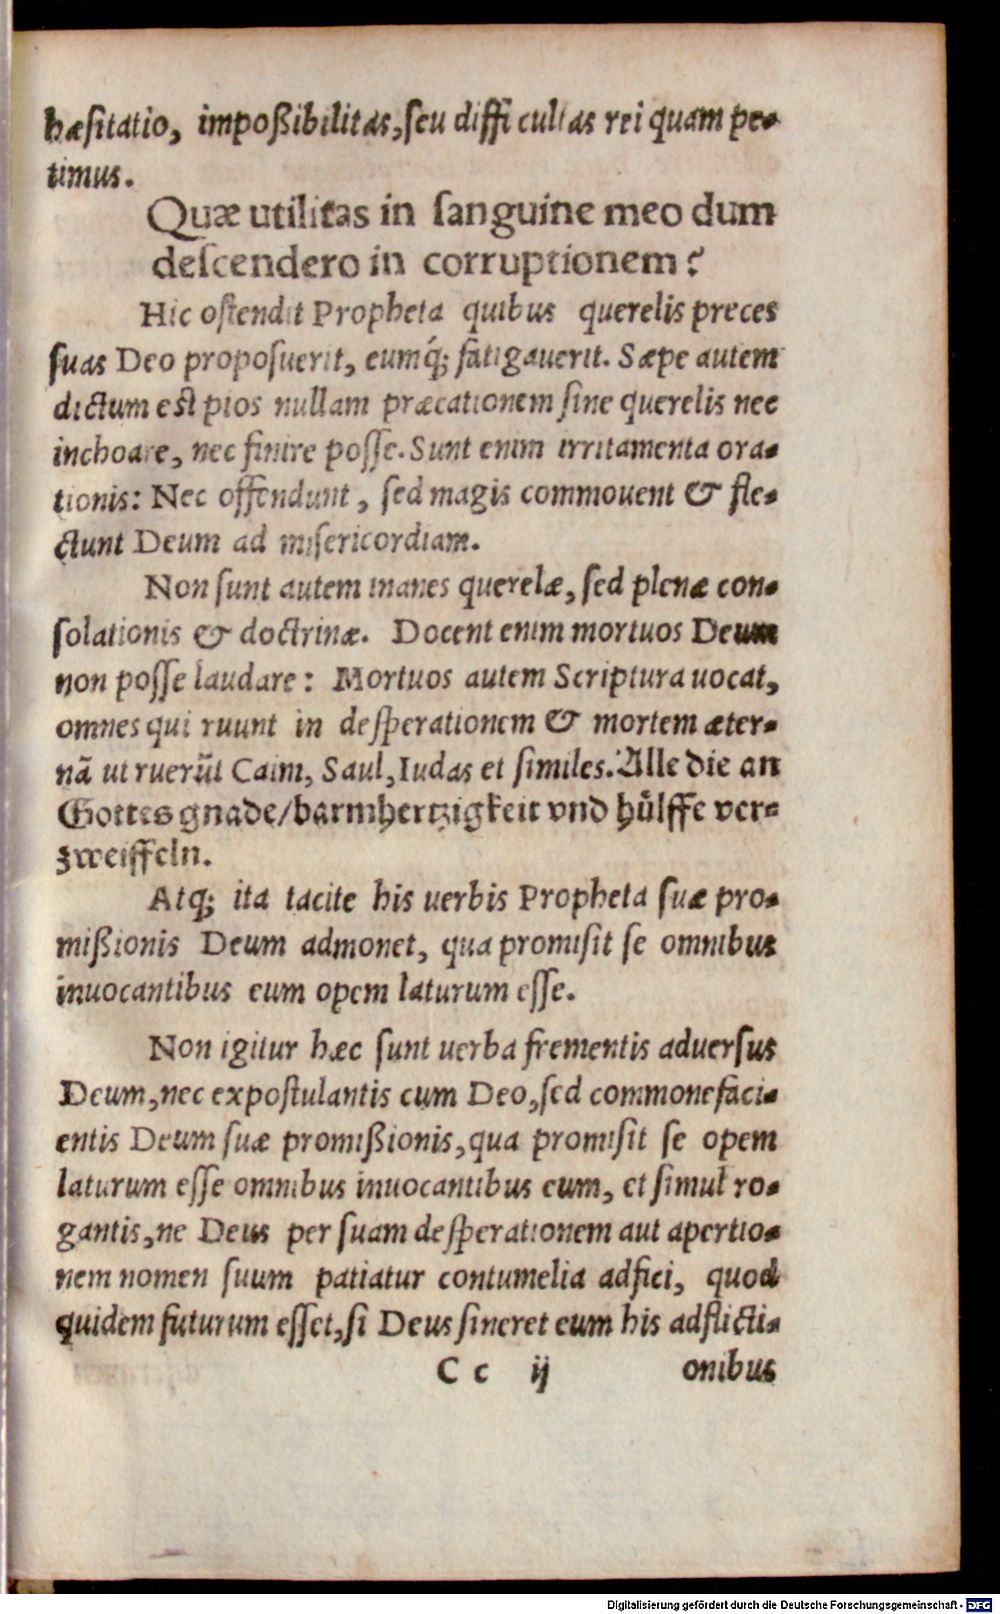 hæsitatio, impoßibilitas, ſeu difficultas rei quam pe-
timus.
Quæ utilitas in ſanguine meo dum
deſcendero in corruptionem?
Hic oſtendit Propheta quibus querelis preces
ſuas Deo propoſuerit, eumq́; fatigauerit. Sæpe autem
dictum eſt pios nullam præcationem ſine querelis nec
inchoare, nec finire poſſe. Sunt enim irritamenta ora-
tionis: Nec offendunt, ſed magis commouent & fle-
ctunt Deum ad miſericordiam.
Non ſunt autem inanes querelæ, ſed plenæ con-
ſolationis & doctrinæ. Docent enim mortuos Deum
non poſſe laudare: Mortuos autem Scriptura uocat,
omnes qui ruunt in deſperationem & mortem æter-
nã ut ruerũt Caim, Saul, Iudas et ſimiles. Alle die an
Gottes gnade/barmhertzigkeit vnd huͤlffe ver-
zweiffeln.
Atq; ita tacite his uerbis Propheta ſuæ pro-
mißionis Deum admonet, qua promiſit ſe omnibus
inuocantibus eum opem laturum eſſe.
Non igitur hæc ſunt uerba frementis aduerſus
Deum, nec expoſtulantis cum Deo, ſed commonefaci-
entis Deum ſuæ promißionis, qua promiſit ſe opem
laturum eſſe omnibus inuocantibus eum, et ſimul ro-
gantis, ne Deus per ſuam deſperationem aut apertio-
nem nomen ſuum patiatur contumelia adfici, quod
quidem futurum eſſet, ſi Deus ſineret eum his adflicti-
C c ij onibus
Digitalisierung gefördert durch die Deutsche Forschungsgemeinschaft - DFG